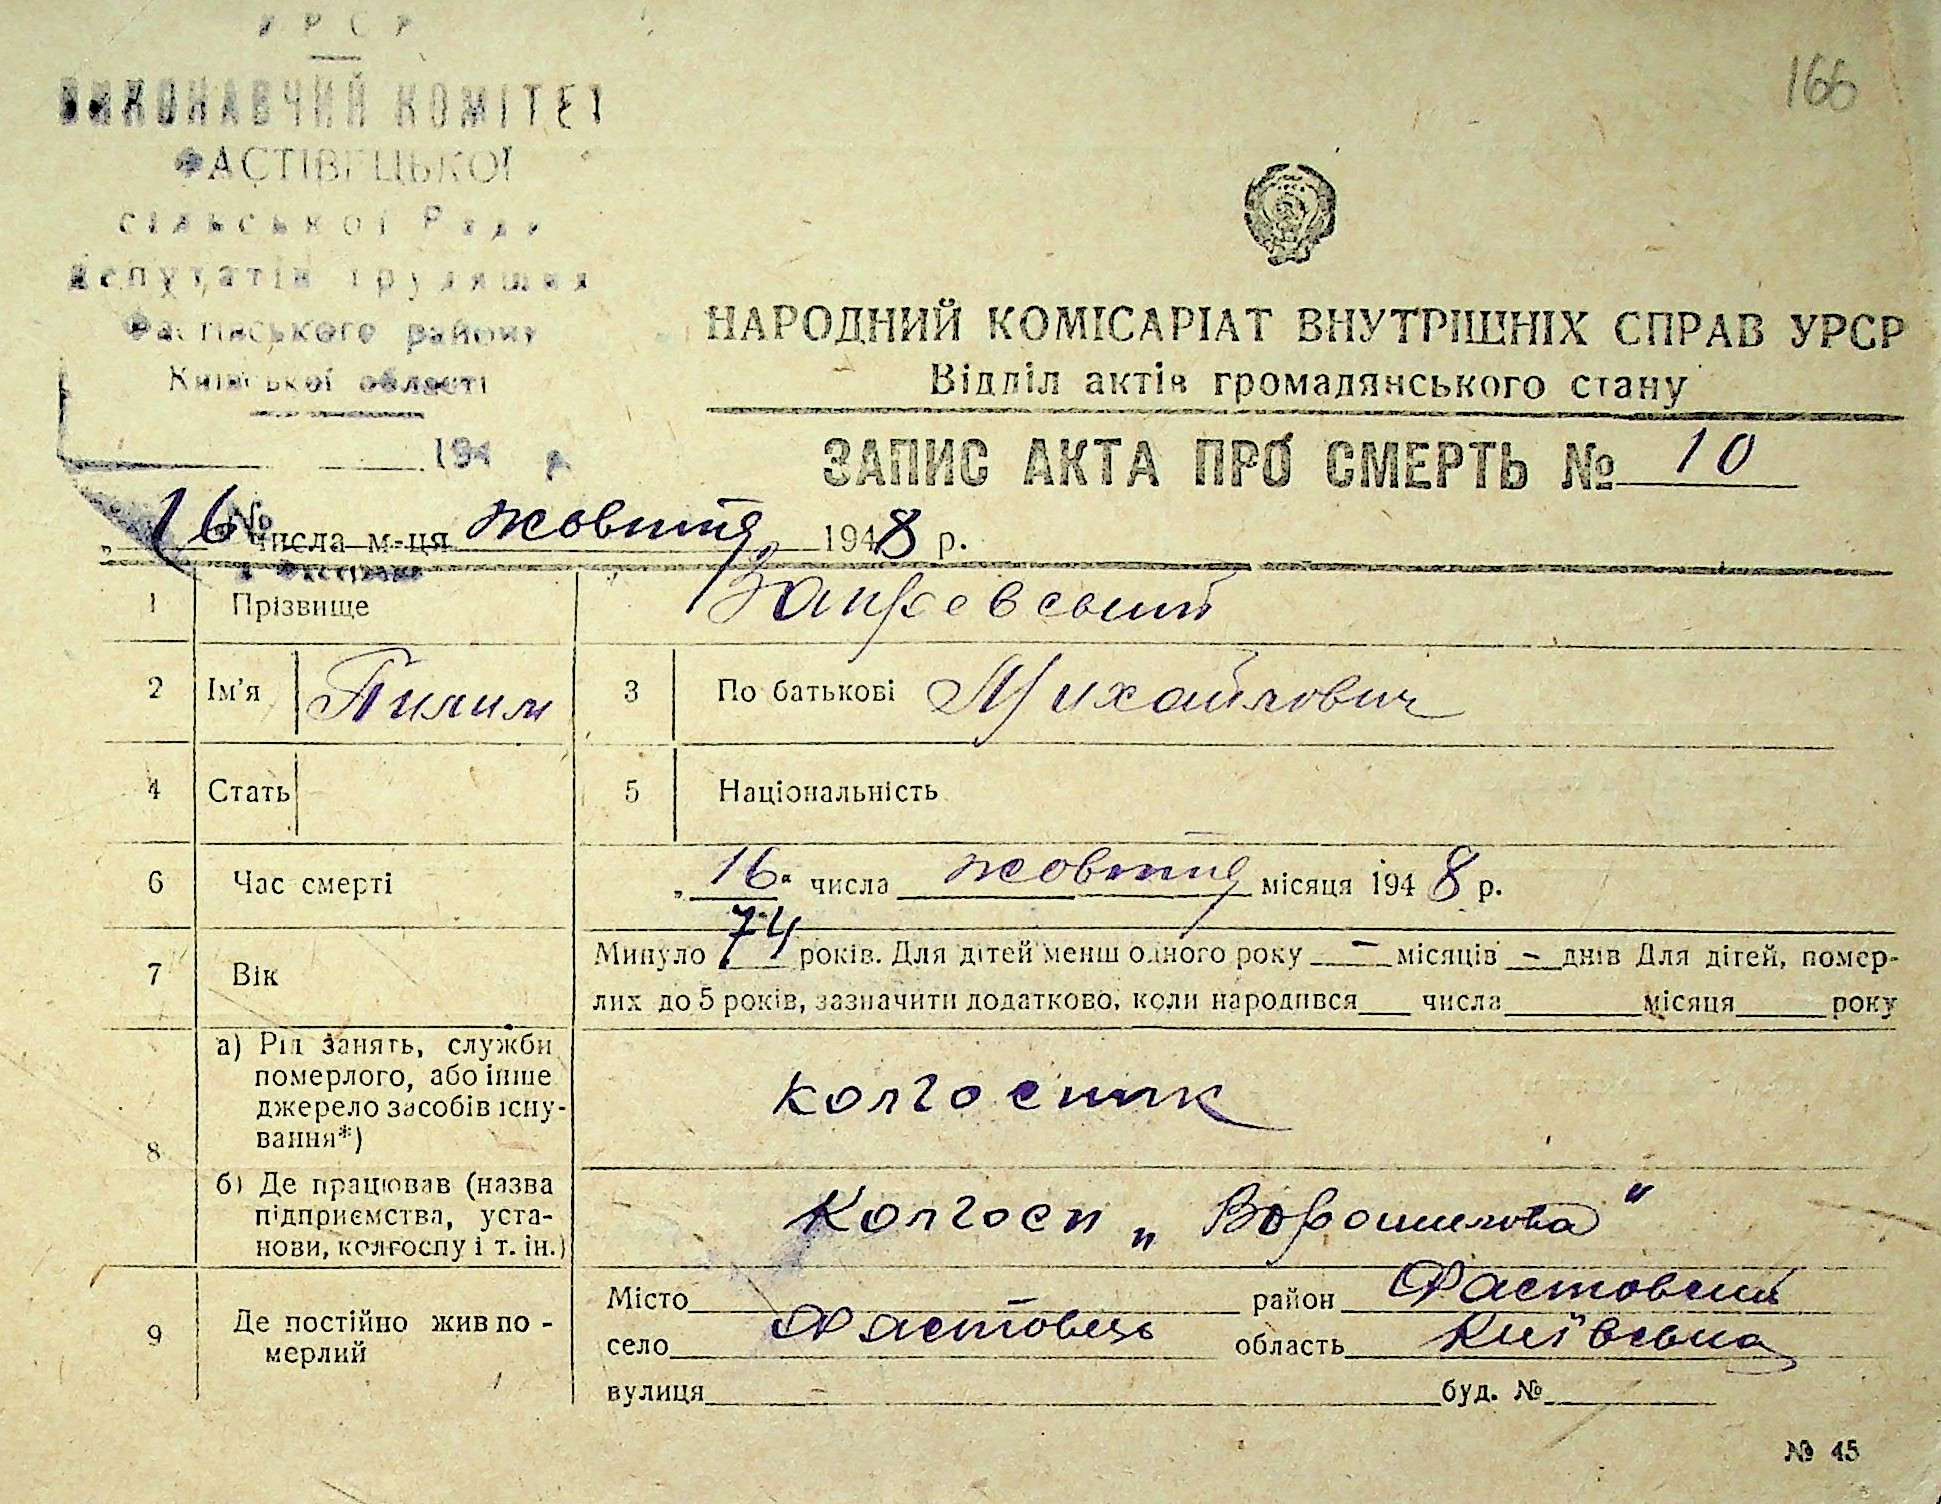 УРСР
ВИКОНАВЧИЙ КОМІТЕТ
ФАСТІВЕЦЬКОЇ
сільської Ради
депутатів трудящих
Фастівського району
Київської області
194 р.
№
166
НАРОДНИЙ КОМІСАРІАТ ВНУТРІШНІХ СПРАВ УРСР
Відділ актів громадянського стану
ЗАПИС АКТА ПРО СМЕРТЬ № 10
„16 числа м-ця жовтня 1948 р.
1 Прізвище Закревський
2 Ім'я Пилип 3 По батькові Михайлович
4 Стать 5 Національність
6 Час смерті „16“ числа жовтня місяця 1948 р.
7 Вік Минуло 74 років. Для дітей менш одного року – місяців – днів Для дітей, помер-
лих до 5 років, зазначити додатково, коли народився числа місяця року
8 а) Рід занять, служби
померлого, або інше
джерело засобів існу-
вання*)
колгоспник
б) Де працював (назва
підприємства, уста-
нови, колгоспу і т. ін.)
Колгосп „Ворошилова"
9 Де постійно жив по-
мерлий
Місто – район Фастовский
село Фастовець область Київська
вулиця – буд. №
№ 45